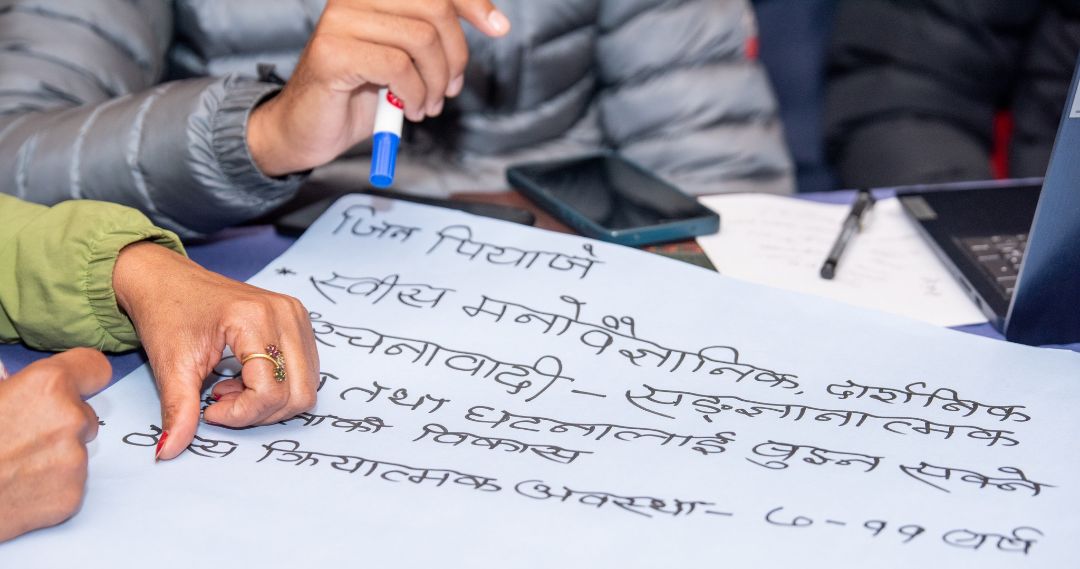 जिन पियाजे
* स्वीस मनोवैज्ञानिक, दार्शनिक
संरचनावादी – सङ्ज्ञानात्मक
तथा घटनालाई बुझ्न सक्ने
विकास
ठोस क्रियात्मक अवस्था – ७ – ११ वर्ष